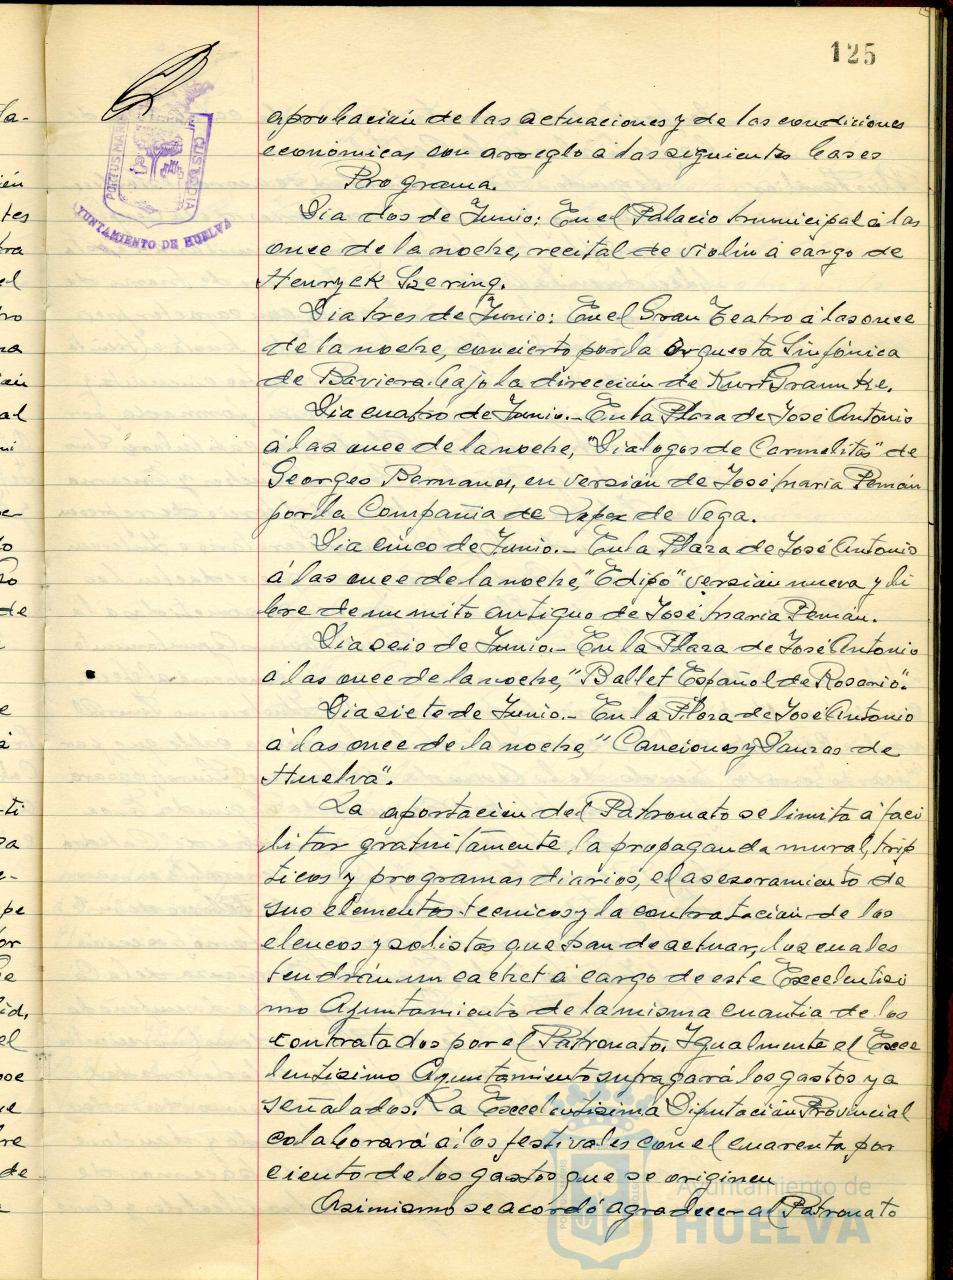 125
PORTUS MARIS
CUSTODIA
AYUNTAMIENTO DE HUELVA
aprobación de las actuaciones y de las condiciones
económicas con arreglo á las siguientes bases
Programa.
Dia dos de Junio: En el Palacio Municipal á las
once de la noche, recital de violín á cargo de
Henryck Szering.
Dia tres de Junio: En el Gran Teatro á las once
de la noche, concierto por la Orquesta Sinfónica
de Baviera bajo la dirección de Kurt Graunke.
Dia cuatro de Junio.- En la Plaza de José Antonio
á las once de la noche, "Dialogos de Carmelitas" de
Georges Bernanos, en versión de José Maria Pemán
por la Compañia de Lope de Vega.
Dia cinco de Junio.- En la Plaza de José Antonio
á las once de la noche, "Edipo" versión nueva y li
bre de un mito antiguo de José Maria Pemán.
Dia seis de Junio.- En la Plaza de José Antonio
á las once de la noche, "Ballet Español de Rosario".
Dia siete de Junio.- En la Plaza de José Antonio
á las once de la noche, "Canciones y Danzas de
Huelva".
La aportación del Patronato se limita á faci
litar gratuitamente la propaganda mural, trip
ticos y programas diarios, el asesoramiento de
sus elementos tecnicos y la contratación de los
elencos y solistas que han de actuar, los cuales
tendrán un cachet á cargo de este Excelentisi
mo Ayuntamiento de la misma cuantia de los
contratados por el Patronato. Igualmente el Exce
lentisimo Ayuntamiento sufragará los gastos ya
señalados. La Excelentisima Diputación Provincial
colaborará á los festivales con el cuarenta por
ciento de los gastos que se originen
Asimismo se acordó agradecer al Patronato
Ayuntamiento de
HUELVA